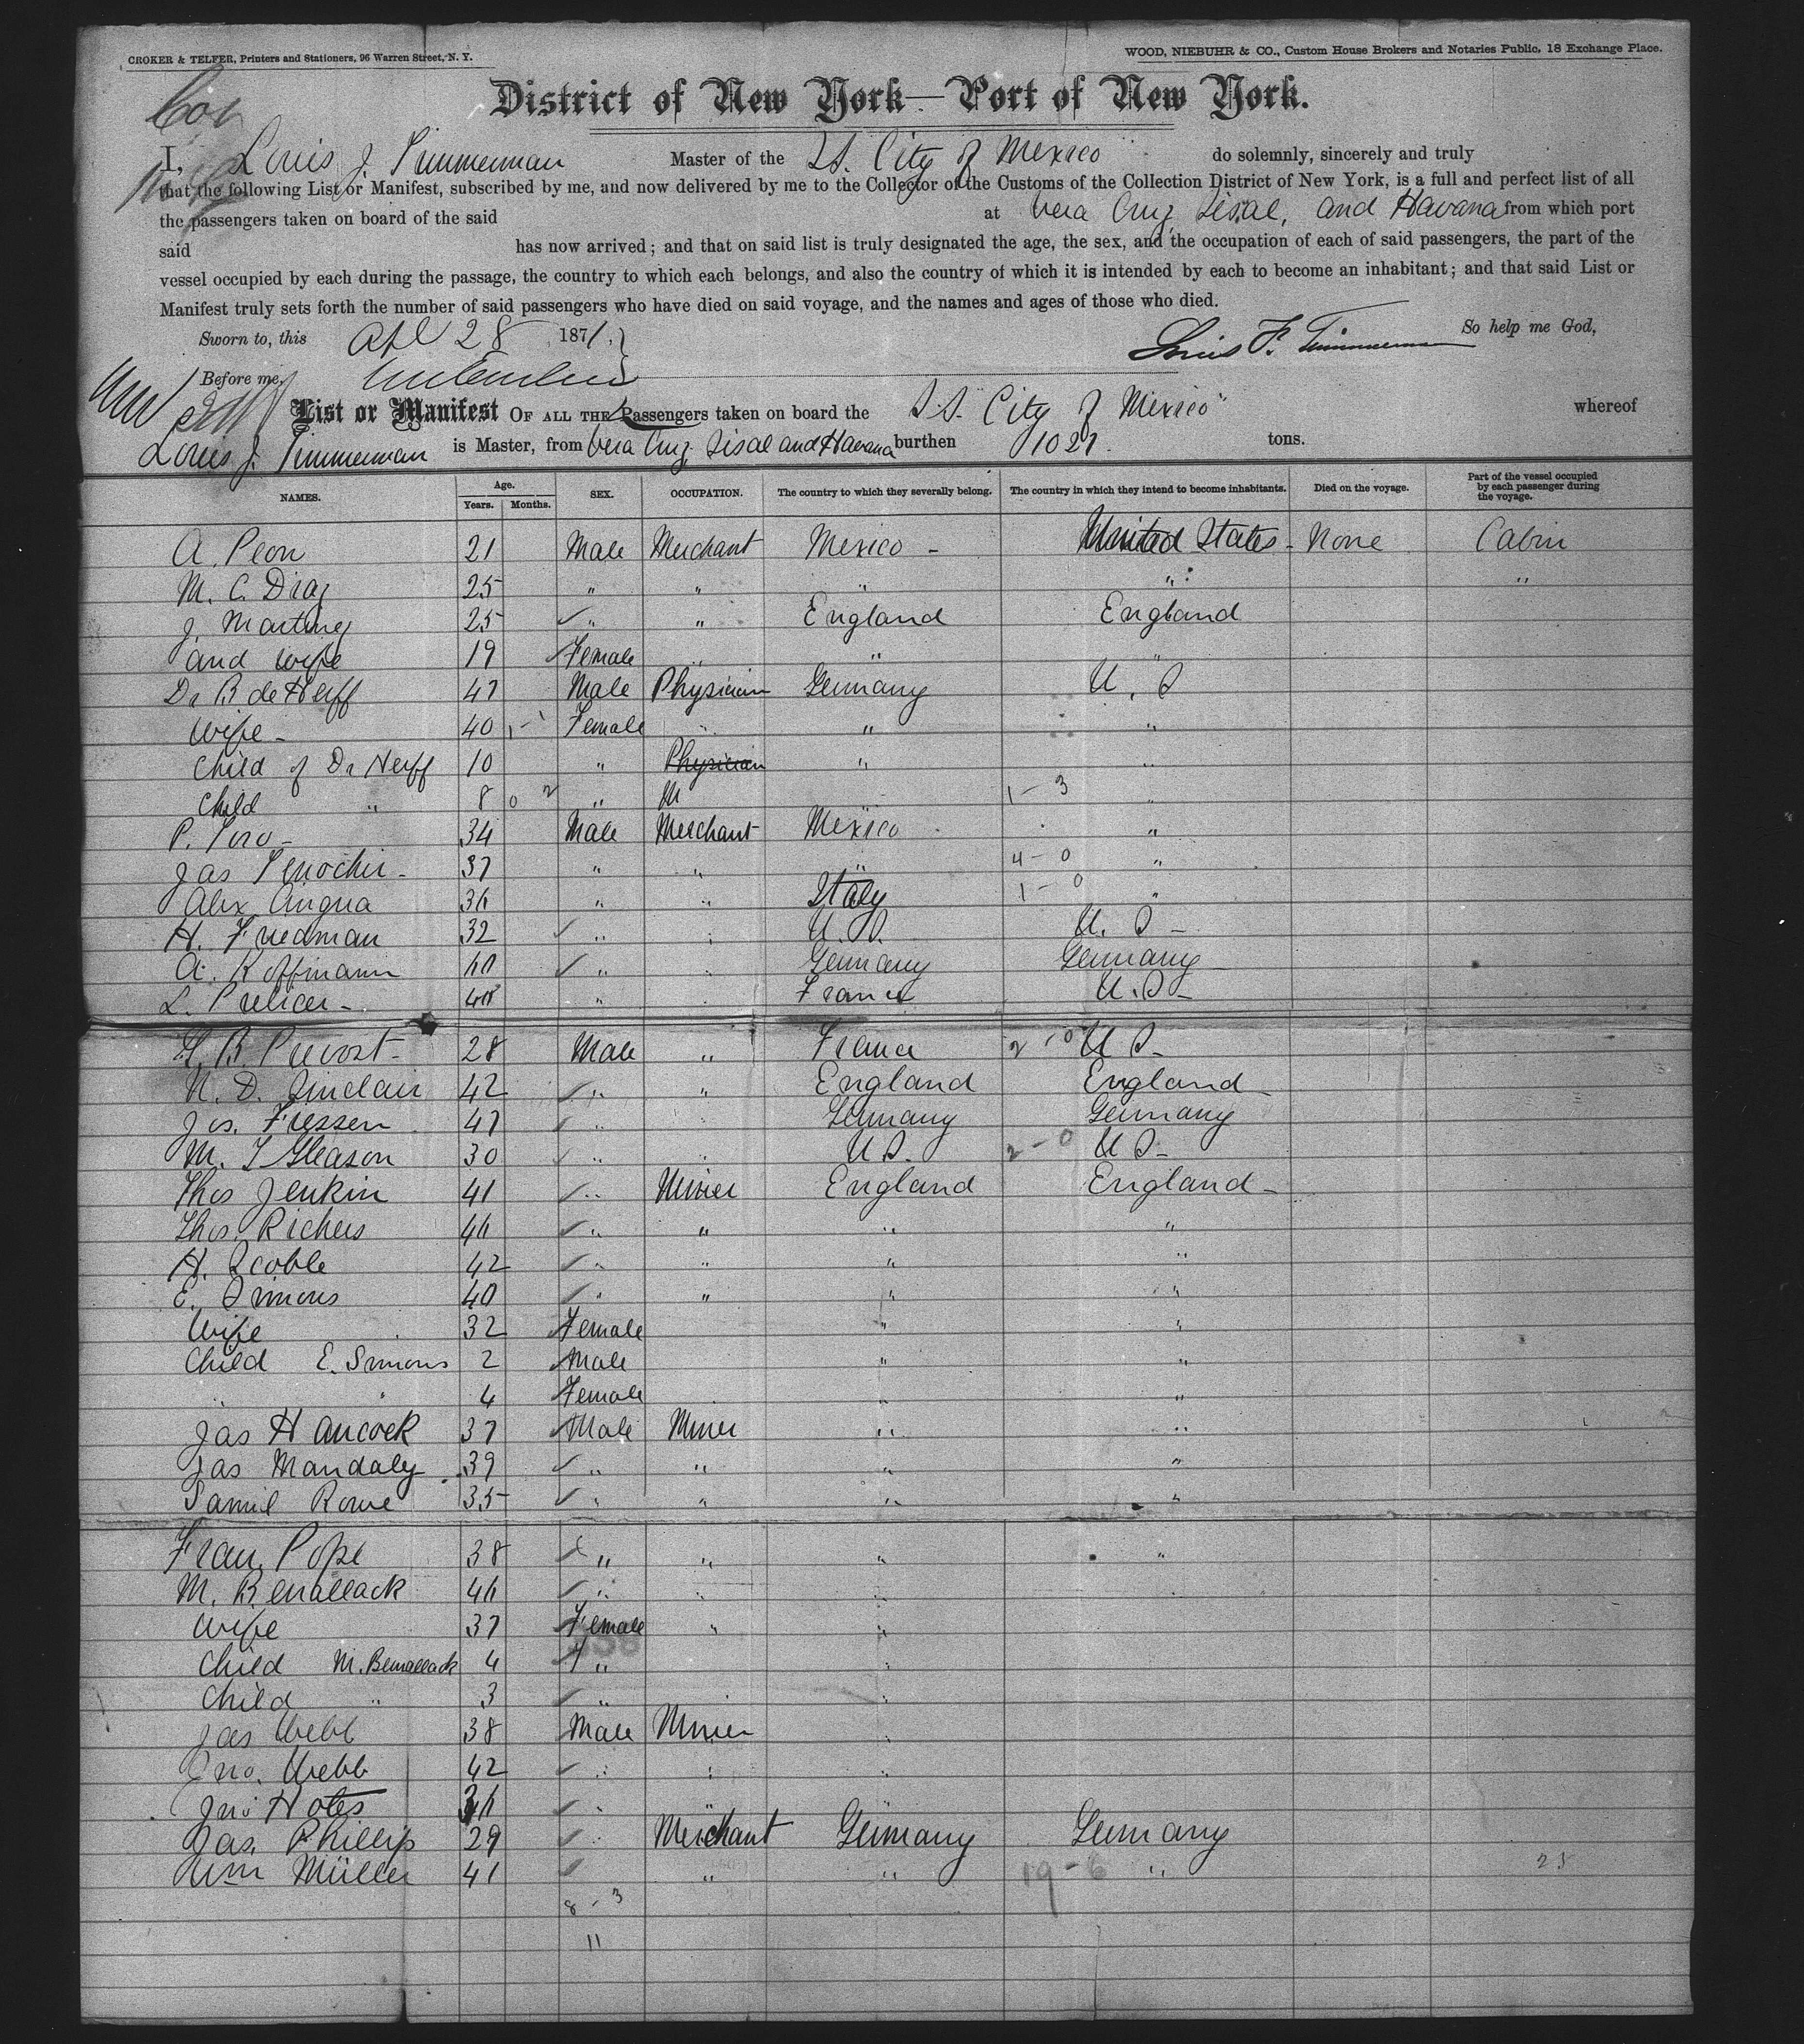 CROKER & TELFER, Printers and Stationers, 96 Warren Street, N. Y.
WOOD, NIEBUHR & CO., Custom House Brokers and Notaries Public, 18 Exchange Place.
District of New York—Port of New York.
I, Louis J. Timmerman Master of the S.S. City of Mexico do solemnly, sincerely and truly
that the following List or Manifest, subscribed by me, and now delivered by me to the Collector of the Customs of the Collection District of New York, is a full and perfect list of all
the passengers taken on board of the said at Vera Cruz, Sisal, and Havana from which port
said has now arrived; and that on said list is truly designated the age, the sex, and the occupation of each of said passengers, the part of the
vessel occupied by each during the passage, the country to which each belongs, and also the country of which it is intended by each to become an inhabitant; and that said List or
Manifest truly sets forth the number of said passengers who have died on said voyage, and the names and ages of those who died.
Sworn to, this Apl 28 1871. So help me God,
Louis F. Timmerman
Before me,
List or Manifest OF ALL THE Passengers taken on board the S.S. City of Mexico whereof
Louis J. Timmerman is Master, from Vera Cruz, Sisal and Havana burthen 1027 tons.
NAMES. Age. Years. Months. SEX. OCCUPATION. The country to which they severally belong. The country in which they intend to become inhabitants. Died on the voyage. Part of the vessel occupied by each passenger during the voyage.
A. Peon 21 Male Merchant Mexico - United States - None Cabin
M. C. Diaz 25 " " " " "
J. Martinez 25 " " England England
and Wife 19 Female " " "
Dr B de Herff 47 Male Physician Germany U. S
Wife - 40 Female " " "
Child of Dr Herff 10 " Physician " "
Child " 8 0 2 " M 1-3 "
P. Toro - 34 Male Merchant Mexico "
Jas 37 " " " 4-0 "
Alex 36 " " Italy 1-0 "
H. Friedman 32 " " U.S. U. S -
A. Koffmann 40 " " Germany Germany
L. - " France U.S -
B Prevost - 28 Male " France 2-0 U S -
N. D. Sinclair 42 " " England England -
Jos. Fressen 47 " Germany Germany
M. T Gleason 30 " " U S. 2-0 U S -
Thos Jenkin 41 " Miner England England -
Thos. Richers 46 " " " "
H. Scoble 42 " " " "
E. Simons 40 " " " "
Wife 32 Female " "
Child E. Simons 2 Male " "
" 4 Female " "
Jas Hancock 37 Male Miner " "
Jas Mandaly 39 " " " "
Saml Rowe 35 " " " "
Fran. Pope 38 " " " "
M. Benallack 46 " " "
Wife 37 Female " "
Child M. Benallack 4 " "
Child " 3 " "
Jas Webb 38 Male Miner "
Jno. Webb 42 " " "
Jno Hotes 36 " " "
Jas. Phillip 29 " Merchant Germany Germany
Wm Müller 41 " " 19-6 " 28
8-3
11